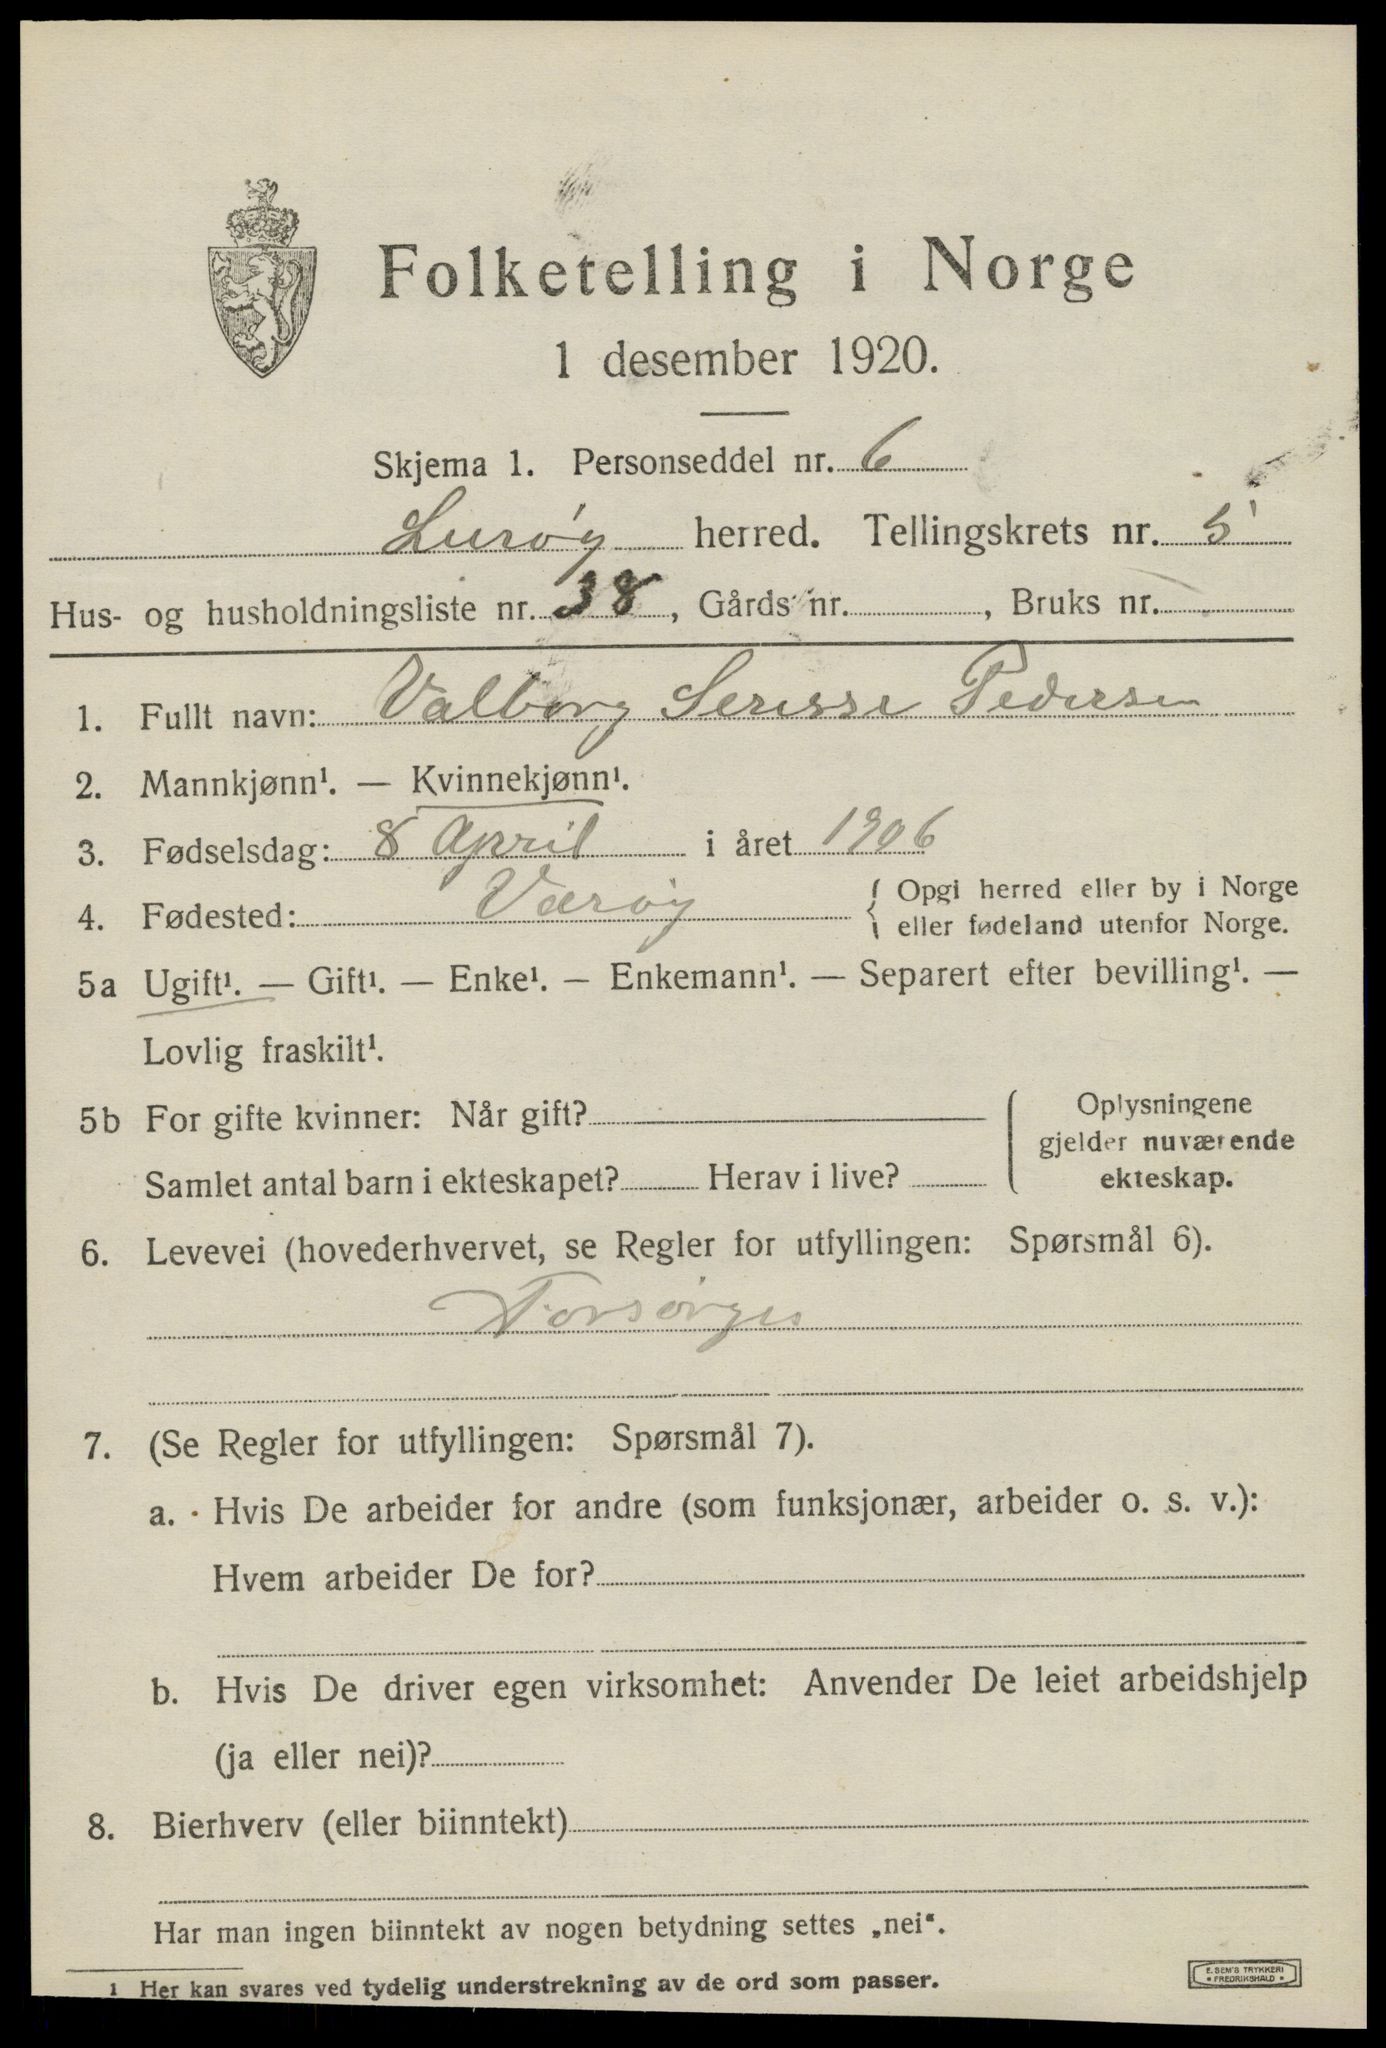 Folketelling i Norge
1 desember 1920.
Skjema 1. Personseddel nr. 6
Lurøy herred. Tellingskrets nr. 5
Hus- og husholdningsliste nr. 38, Gårds nr. , Bruks nr.
1. Fullt navn: Valborg Pedersen
2. Mannkjønn¹. — Kvinnekjønn¹.
3. Fødselsdag: 8 April i året 1906
4. Fødested: Værøy { Opgi herred eller by i Norge
eller fødeland utenfor Norge.
5a Ugift¹. — Gift¹. — Enke¹. — Enkemann¹. — Separert efter bevilling¹. —
Lovlig fraskilt¹.
5b For gifte kvinner: Når gift?
Samlet antal barn i ekteskapet? Herav i live?
Oplysningene
gjelder nuværende
ekteskap.
6. Levevei (hovederhvervet, se Regler for utfyllingen: Spørsmål 6).
Forsørges
7. (Se Regler for utfyllingen: Spørsmål 7).
a. Hvis De arbeider for andre (som funksjonær, arbeider o. s. v.):
Hvem arbeider De for?
b. Hvis De driver egen virksomhet: Anvender De leiet arbeidshjelp
(ja eller nei)?
8. Bierhverv (eller biinntekt)
Har man ingen biinntekt av nogen betydning settes „nei“.
1 Her kan svares ved tydelig understrekning av de ord som passer.
E. SEM'S TRYKKERI
• FREDRIKSHALD •